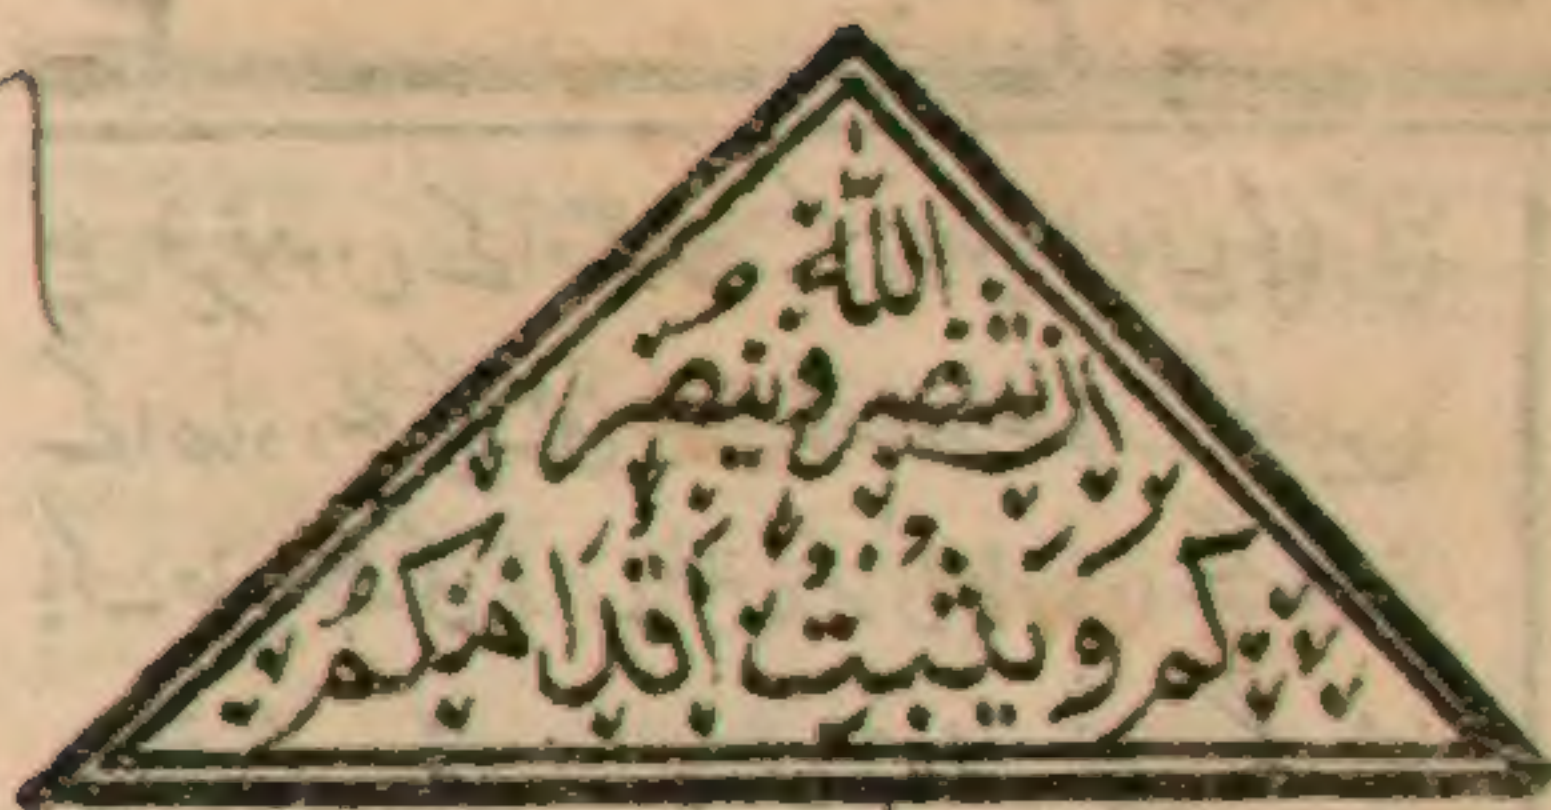 ان تنصروا الله ينصر
كم ويثبت أقدامكم